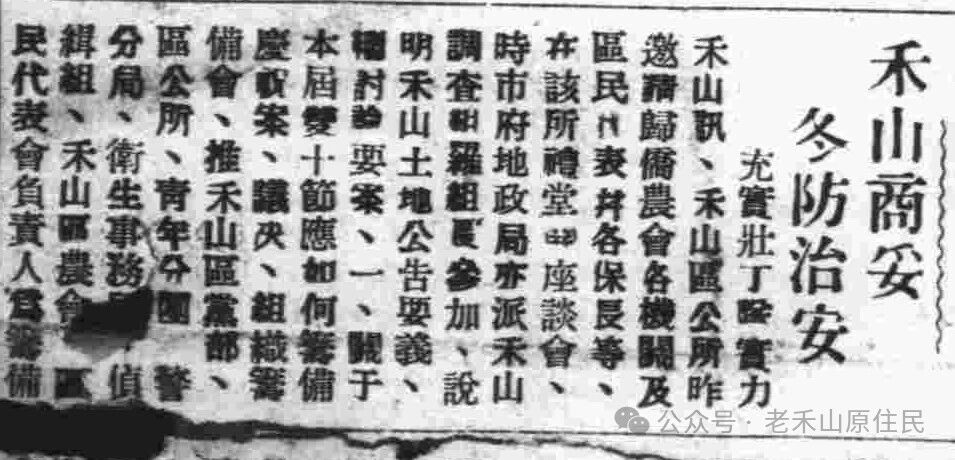 禾山商妥
冬防治安
充實壯丁隊實力
禾山訊、禾山區公所昨
邀請歸僑農會各機關及
區民代表幷各保長等、
在該所禮堂開座談會、
時市府地政局亦派禾山
調查組羅組長參加、說
明禾山土地公告要義、
檢討論要案、一、關于
本屆雙十節應如何籌備
慶祝案、議決、組織籌
備會、推禾山區黨部、
區公所、青年分團 警
分局、衛生事務 偵
緝組、禾山區農會 區
民代表會負責人爲籌備
公众号·老禾山原住民